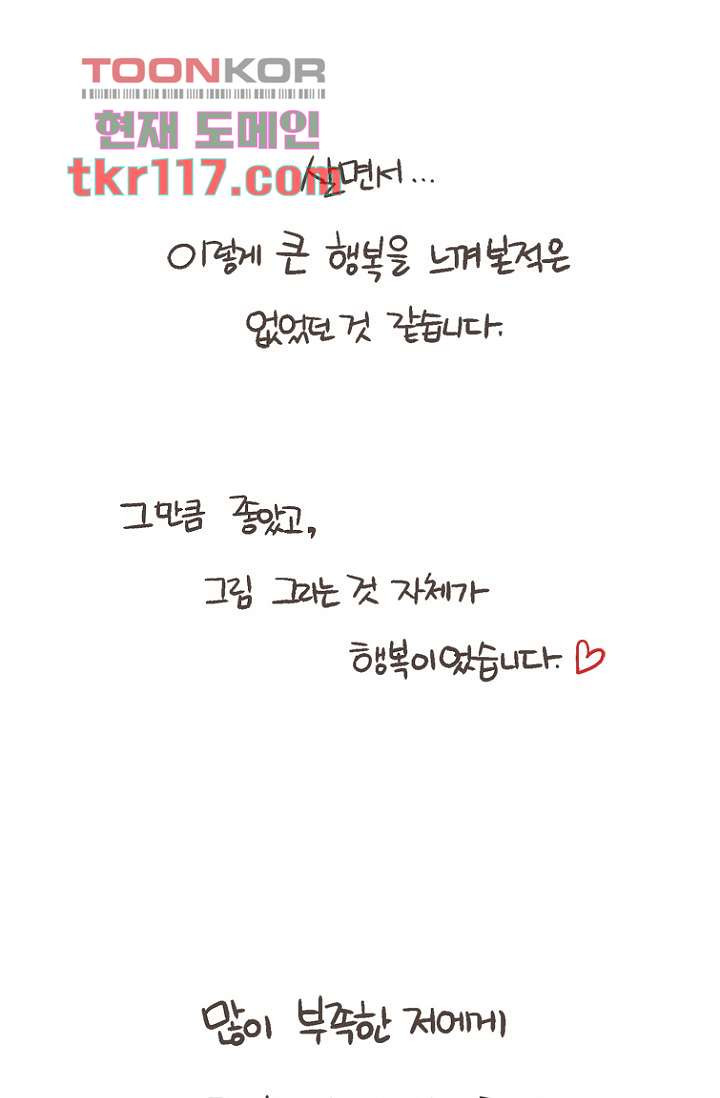 TOONKOR
현재 도메인
tkr117.com
살면서...
이렇게 큰 행복을 느껴본적은
없었던 것 같습니다.
그만큼 좋았고,
그림 그리는 것 자체가
행복이었습니다.♡
많이 부족한 저에게